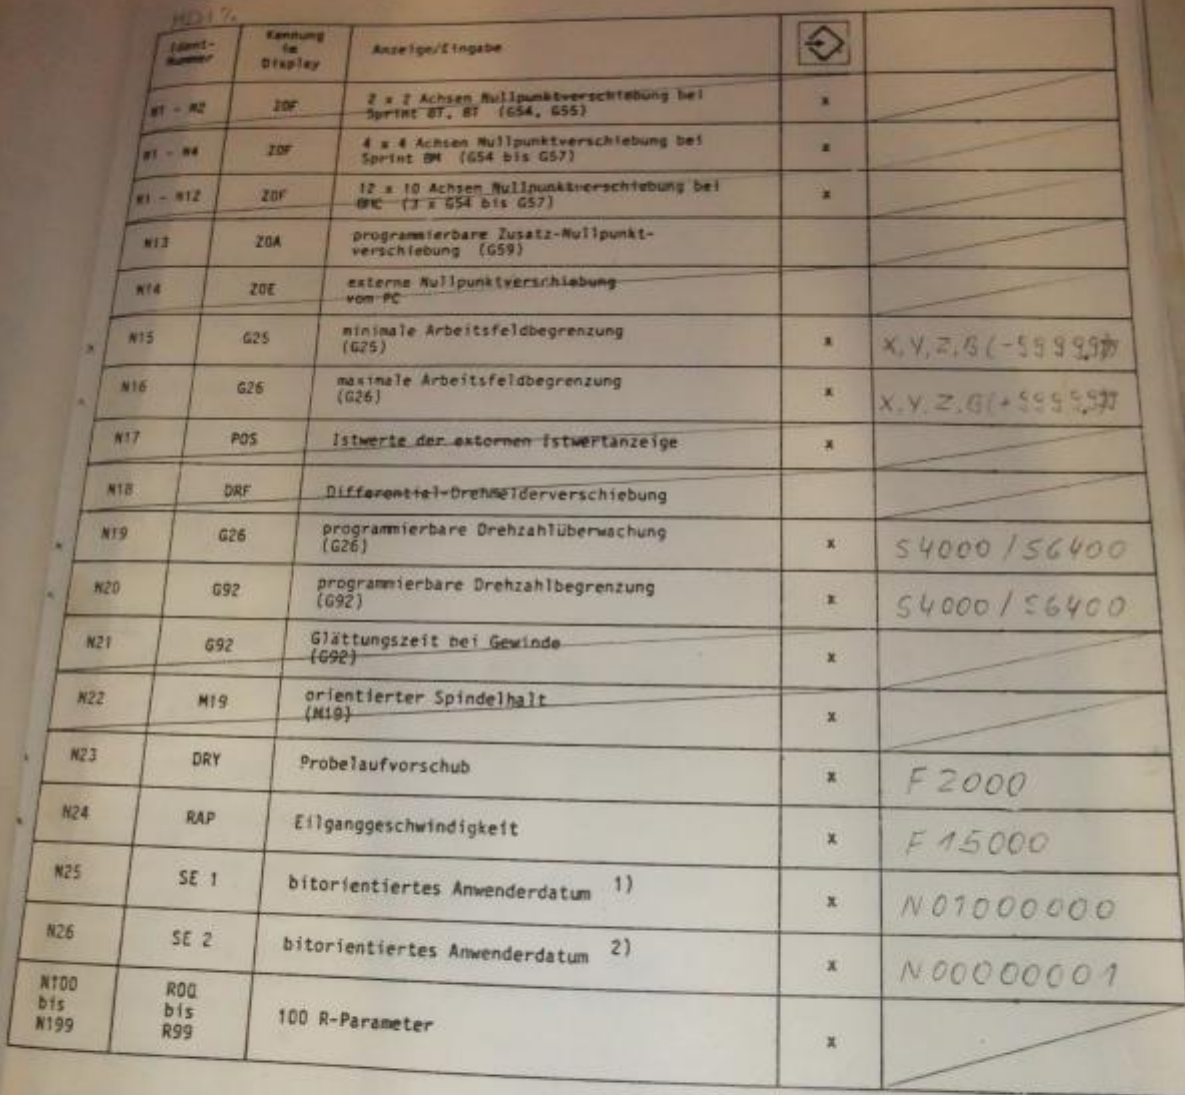 Ident-
Nummer
Kennung
im
Display
Anzeige/Eingabe
N1 - N2 ZOF 2 x 2 Achsen Nullpunktverschiebung bei
Sprint 8T, BT (G54, G55) x
N1 - N4 ZOF 4 x 4 Achsen Nullpunktverschiebung bei
Sprint 8M (G54 bis G57) x
N1 - N12 ZOF 12 x 10 Achsen Nullpunktverschiebung bei
8MC (3 x G54 bis G57) x
N13 ZOA programmierbare Zusatz-Nullpunkt-
verschiebung (G59)
N14 ZOE externe Nullpunktverschiebung
vom PC
N15 G25 minimale Arbeitsfeldbegrenzung
(G25) x X,Y,Z,B
N16 G26 maximale Arbeitsfeldbegrenzung
(G26) x X,Y,Z,B
N17 POS Istwerte der externen Istwertanzeige x
N18 DRF Differential-Drehmelderverschiebung
N19 G26 programmierbare Drehzahlüberwachung
(G26) x S4000/S6400
N20 G92 programmierbare Drehzahlbegrenzung
(G92) x S4000/S6400
N21 G92 Glättungszeit bei Gewinde
(G92) x
N22 M19 orientierter Spindelhalt
(M19) x
N23 DRY Probelaufvorschub x F2000
N24 RAP Eilganggeschwindigkeit x F15000
N25 SE 1 bitorientiertes Anwenderdatum 1) x N01000000
N26 SE 2 bitorientiertes Anwenderdatum 2) x N00000001
N100
bis
N199
R00
bis
R99
100 R-Parameter x